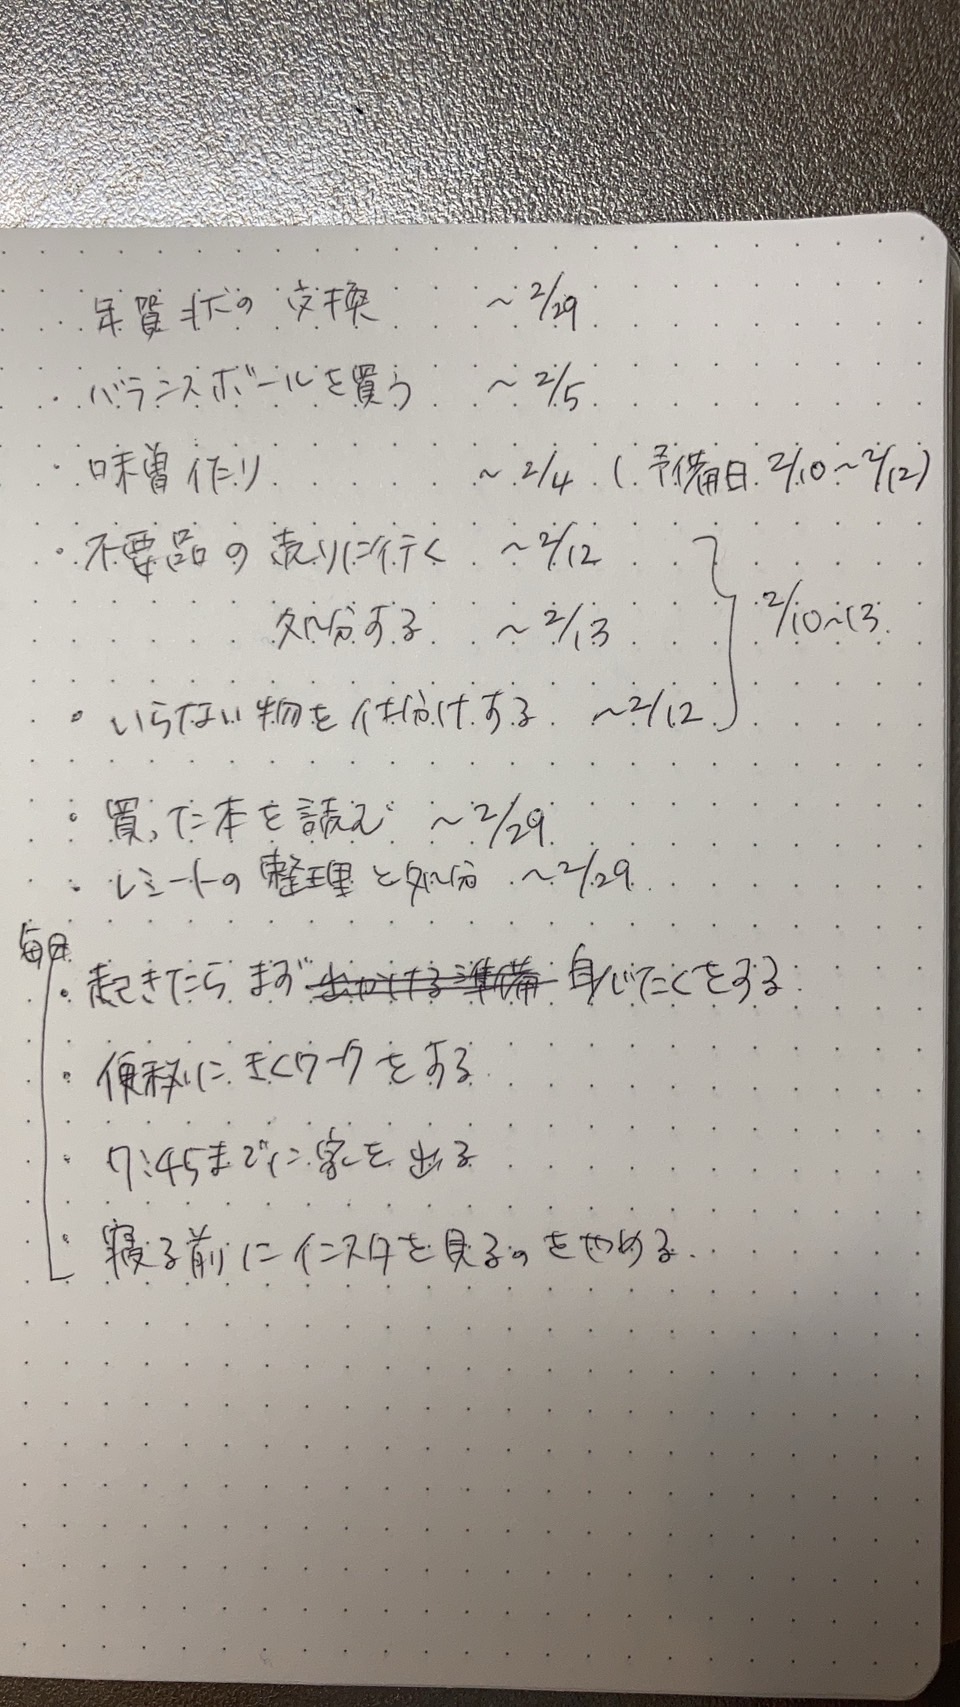 年賀状の交換 ~2/29
・バランスボールを買う ~2/5
・味噌作り ~2/4 (予備日 2/10~2/12)
・不要品の売りに行く ~2/12
処分する ~2/13
2/10~13
・いらない物を仕分けする ~2/12
・買った本を読む ~2/29
・レシートの整理と処分 ~2/29
毎日
・起きたらまず 出かける準備 身じたくをする
・便秘にきくワークをする
・7:45までに家を出る
・寝る前にインスタを見るのをやめる